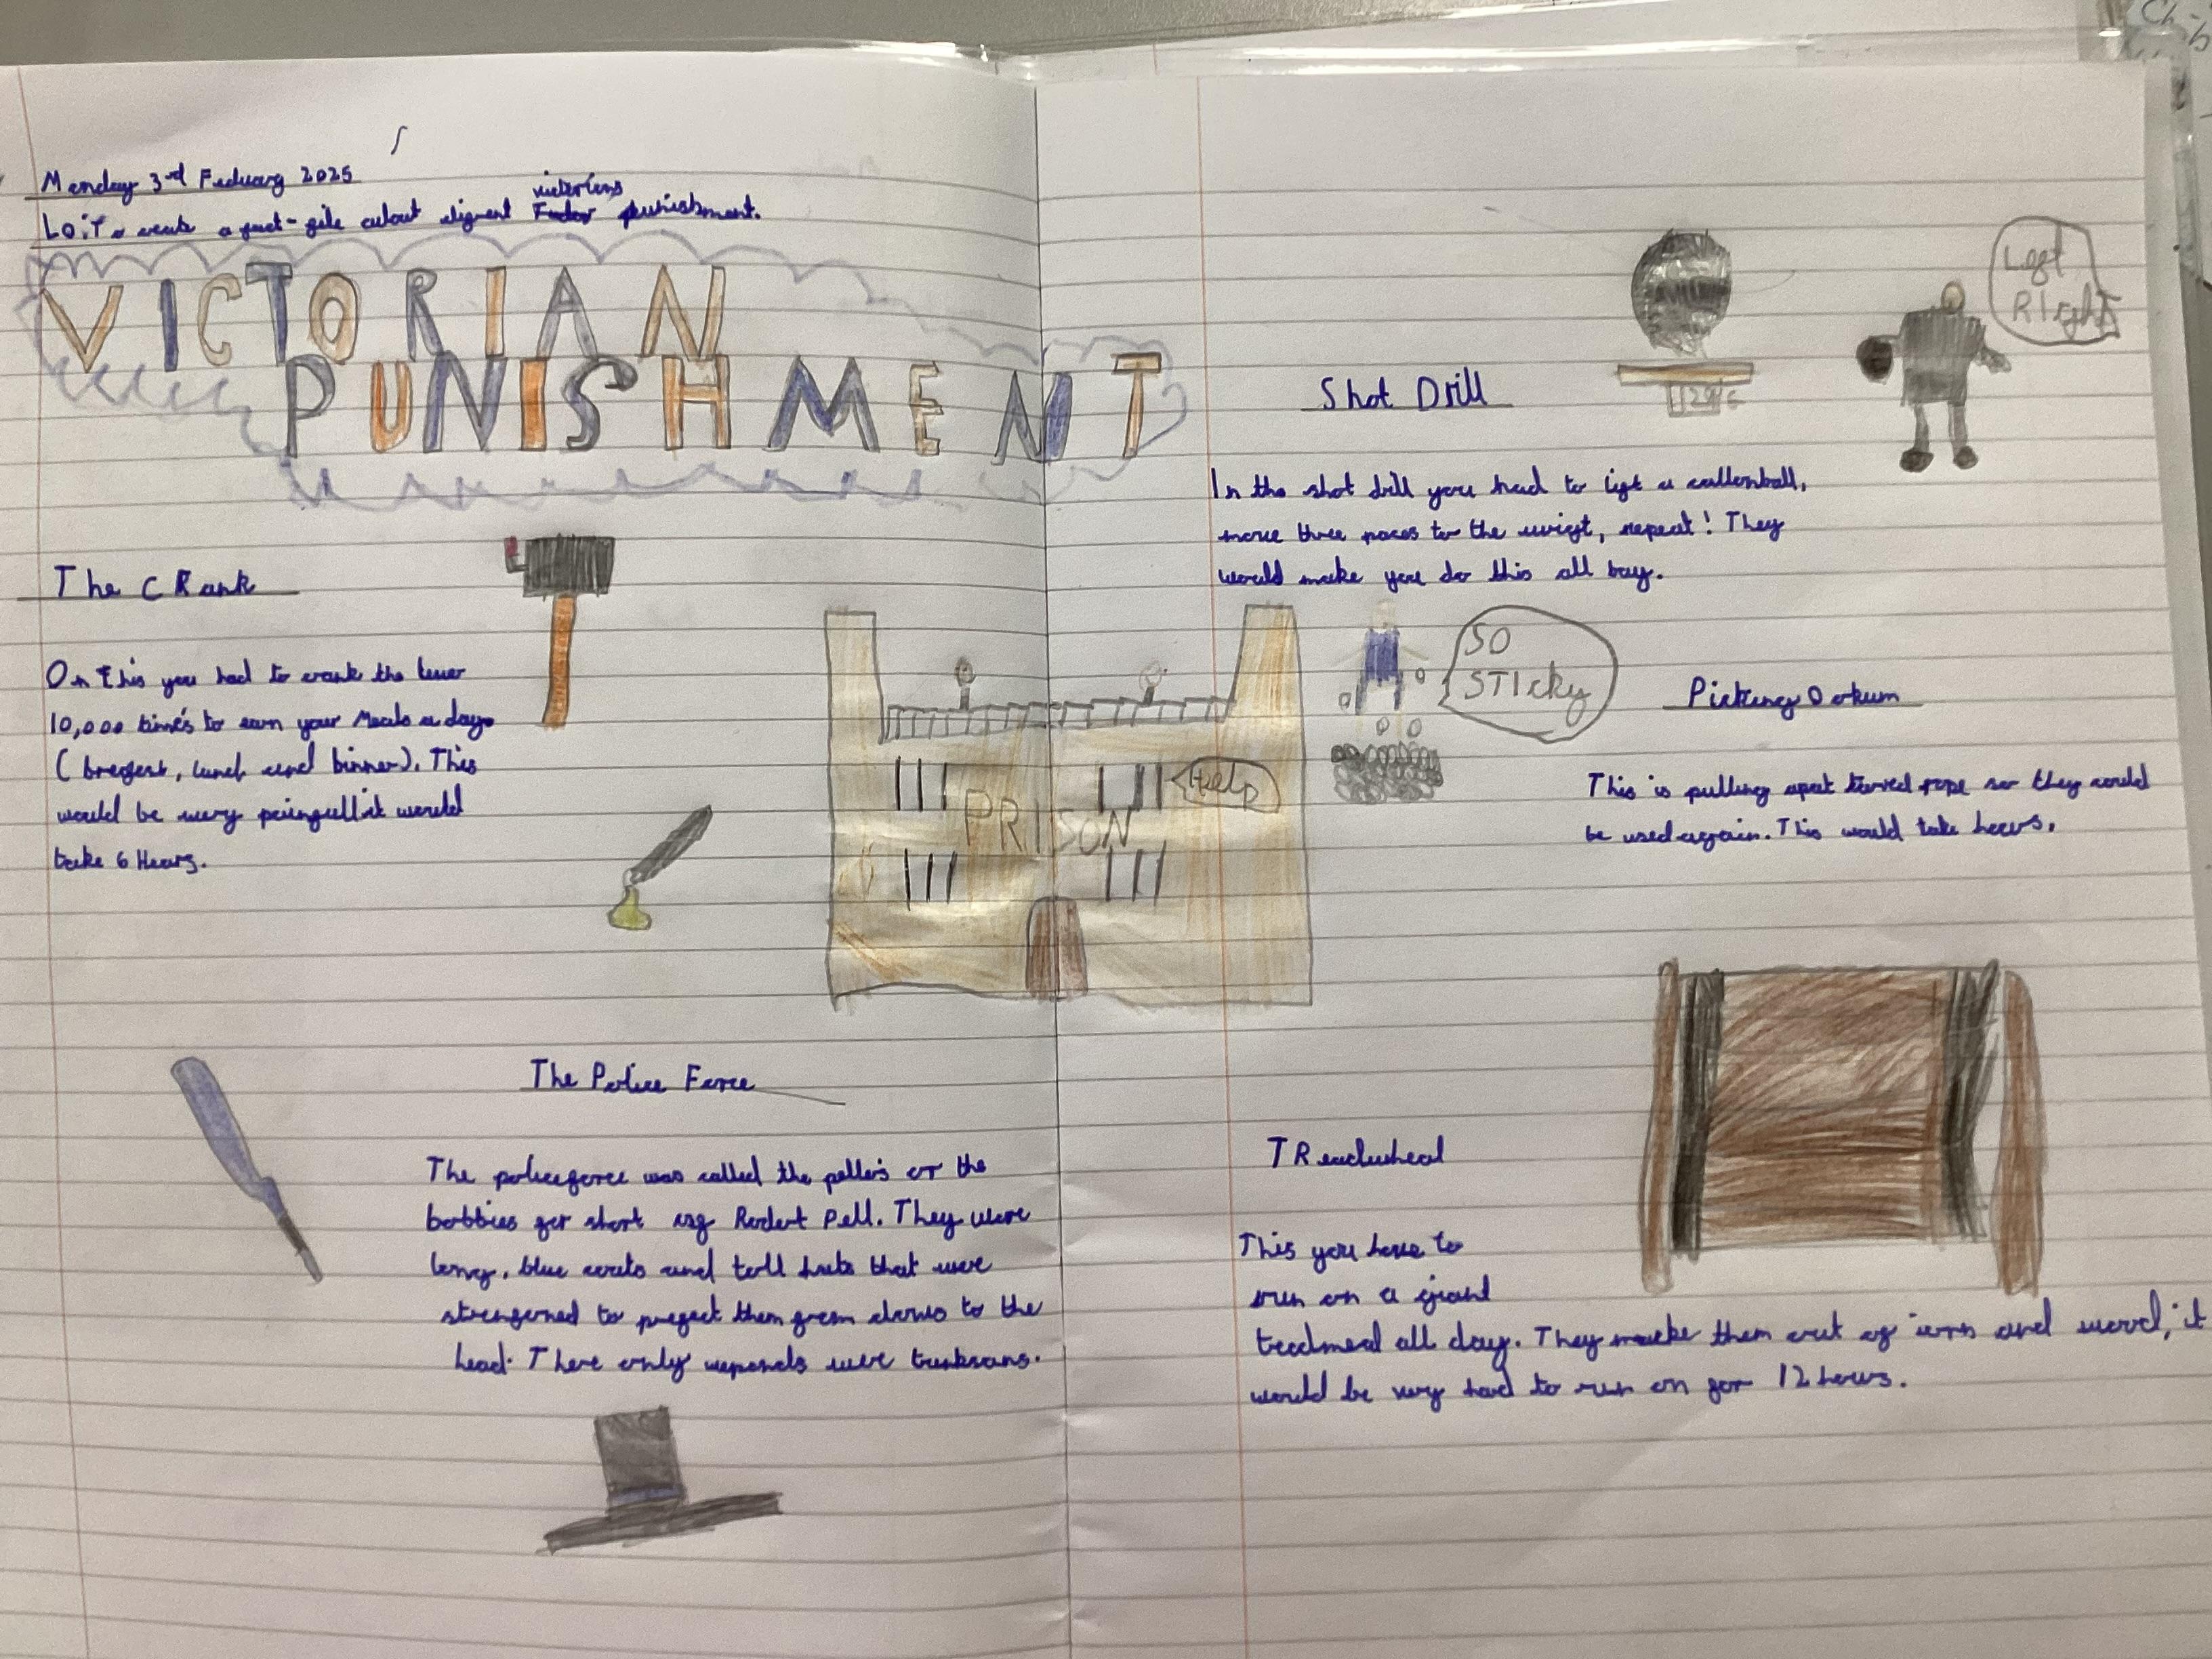 Monday 3rd Feduary 2025
LO: To create a fact-file about difrent
victorians
punishment.
VICTORIAN
PUNISHMENT
The CRank
On this you had to crank the lever
10,000 time's to earn your Meals a day
(brefest, lunch and binner). This
would be very painfull it would
take 6 Hears.
PRISON
Help
The Police Force
The policeforce was called the pellers or the
bobbies for short of Rodert Pell. They wore
long, blue coats and tall hats that were
strengerned to profect them from to the
head. There only weponds were
Shot Drill
Left
RIght
In the shot drill you had to lift a callonball,
move three paces to the , repeat! They
would make you do this all bay.
SO
STIcky
Picking Oakum
This is pulling apart tarred rope so they could
be used again. This would take hours.
TReadwheal
This you have to
run on a giant
treadmeal all day. They make them out of and wood, it
would be very had to run on for 12 hours.